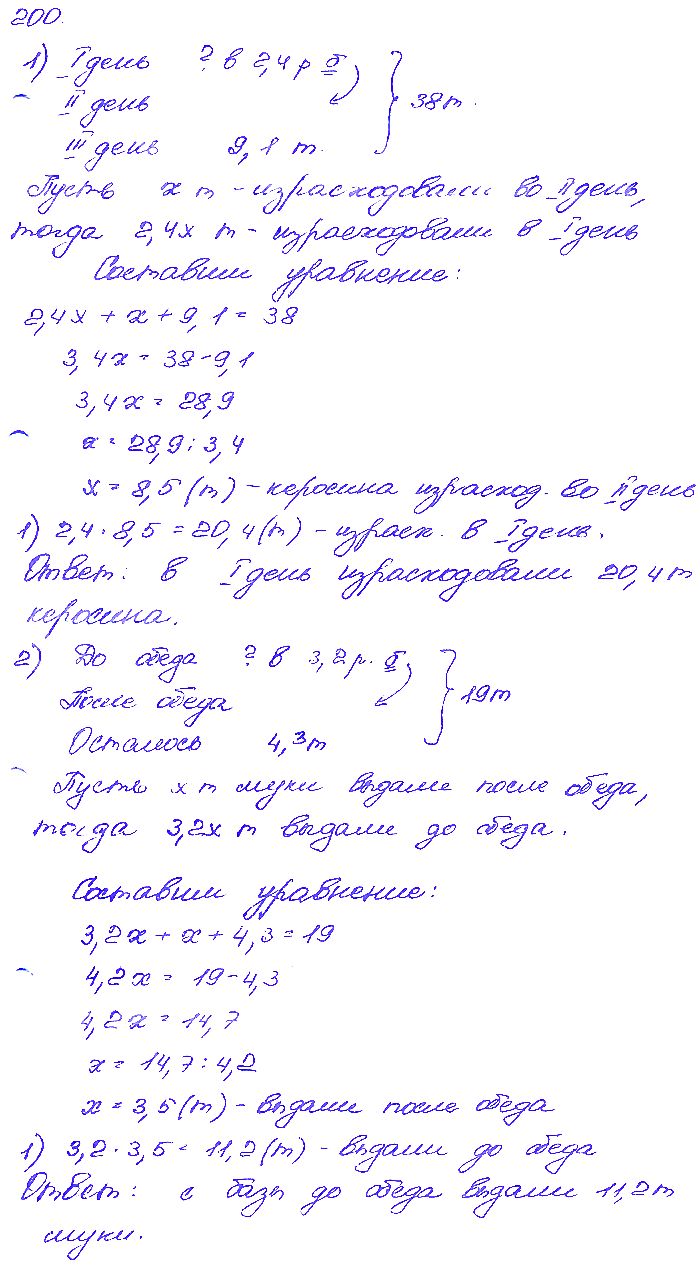 200.
1) I день ? в 2,4 р б } 38 т.
II день
III день 9,1 т.
Пусть х т - израсходовали во II день,
тогда 2,4х т - израсходовали в I день
Составим уравнение:
2,4х + х + 9,1 = 38
3,4х = 38-9,1
3,4х = 28,9
х = 28,9 : 3,4
х = 8,5 (т) - керосина израсход. во II день
1) 2,4 · 8,5 = 20,4 (т) - израсх. в I день.
Ответ: в I день израсходовали 20,4 т
керосина.
2) До обеда ? в 3,2 р. б } 19 т
После обеда
Осталось 4,3 т
Пусть х т муки выдали после обеда,
тогда 3,2х т выдали до обеда.
Составим уравнение:
3,2х + х + 4,3 = 19
4,2х = 19-4,3
4,2х = 14,7
х = 14,7 : 4,2
х = 3,5 (т) - выдали после обеда
1) 3,2 · 3,5 = 11,2 (т) - выдали до обеда
Ответ: с базы до обеда выдали 11,2 т
муки.